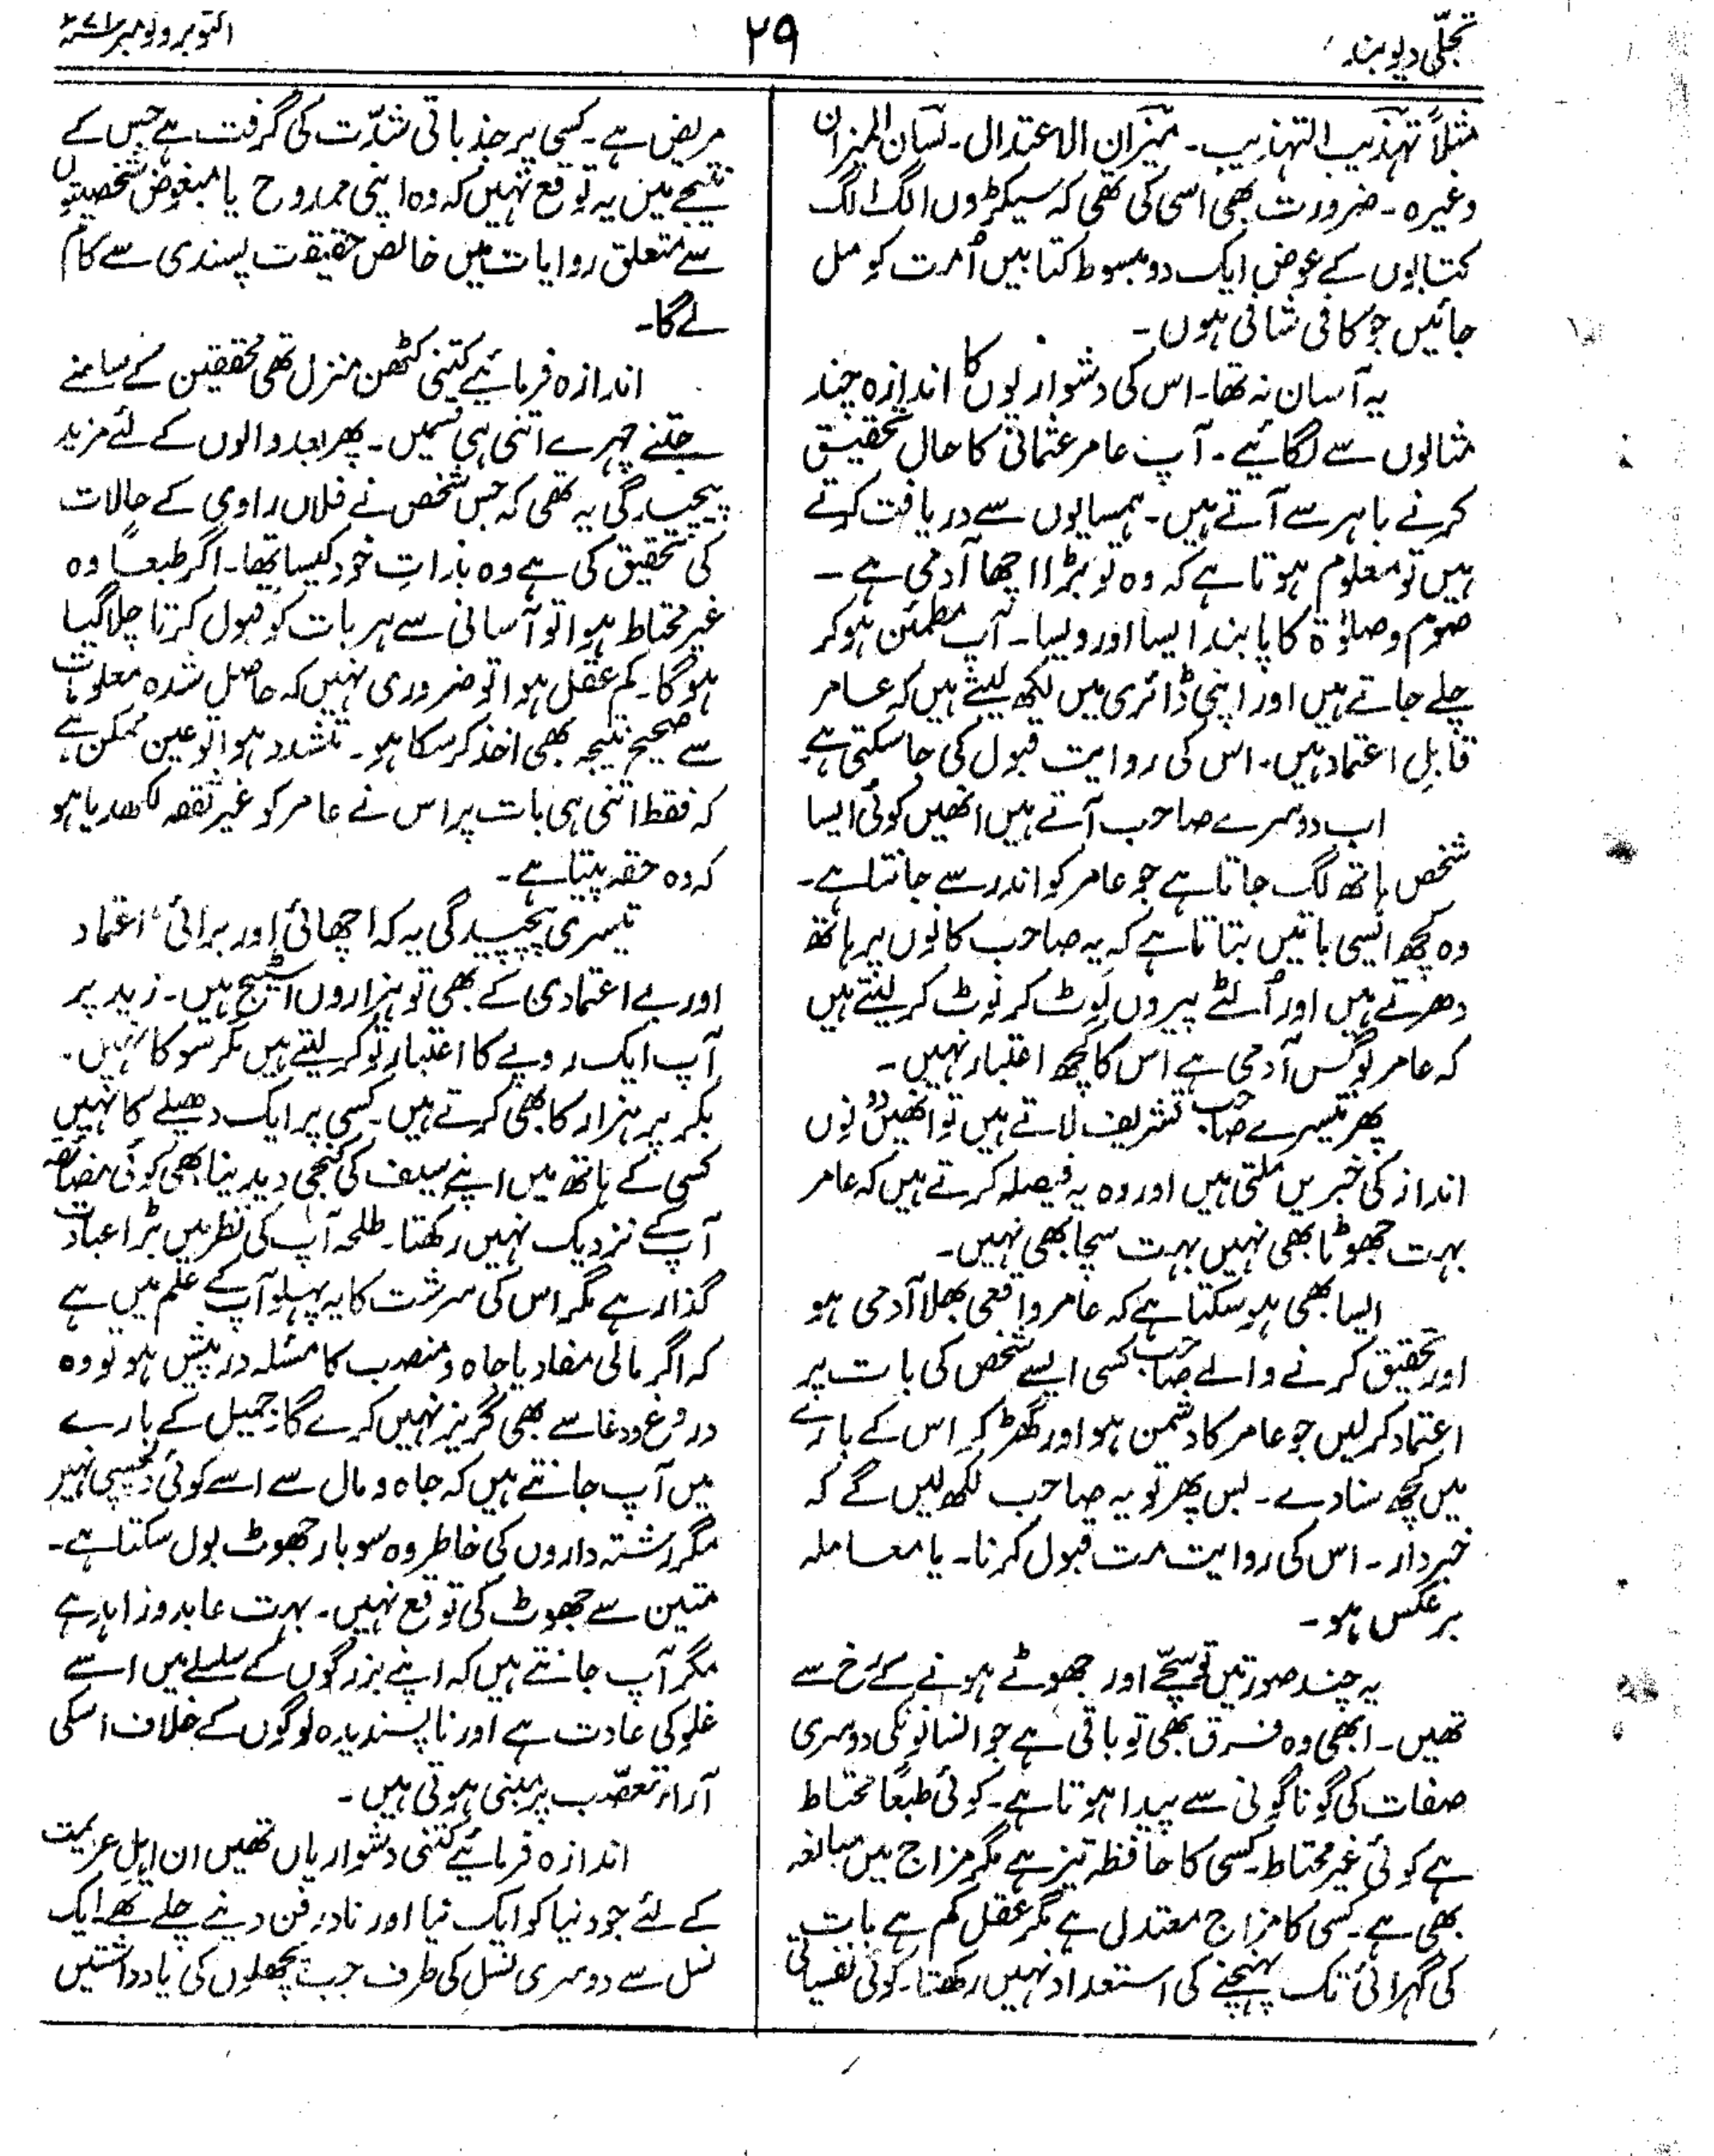 تجلّی دیوبند
۲۹
اکتوبر و نومبر ۷۱ء
مثلاً تہذیب التہذیب۔ میزان الاعتدال۔ لسان المیزان
وغیرہ۔ ضرورت بھی اسی کی تھی کہ سیکڑوں الگ الگ
کتابوں کے عوض ایک دو مبسوط کتابیں اُمت کو مل
جائیں جو کافی شافی ہوں۔
یہ آسان نہ تھا۔ اس کی دشواریوں کا اندازہ چند
مثالوں سے لگائیے۔ آپ عامر عثمانی کا حال تحقیق
کرنے باہر سے آتے ہیں۔ ہمسایوں سے دریافت کرتے
ہیں تو معلوم ہوتا ہے کہ وہ تو بڑا اچھا آدمی ہے –
صوم و صلوٰۃ کا پابند ایسا اور ویسا۔ آپ مطمئن ہو کر
چلے جاتے ہیں اور اپنی ڈائری میں لکھ لیتے ہیں کہ عامر
قابلِ اعتماد ہیں۔ اس کی روایت قبول کی جا سکتی ہے۔
اب دوسرے صاحب آتے ہیں انھیں کوئی ایسا
شخص ہاتھ لگ جاتا ہے جو عامر کو اندر سے جانتا ہے۔
وہ کچھ ایسی باتیں بتاتا ہے کہ یہ صاحب کانوں پر ہاتھ
دھرتے ہیں اور اُلٹے پیروں لوٹ کر نوٹ کر لیتے ہیں
کہ عامر بوگس آدمی ہے اس کا کچھ اعتبار نہیں۔
پھر تیسرے صاحب تشریف لاتے ہیں تو انھیں دونوں
انداز کی خبریں ملتی ہیں اور وہ یہ فیصلہ کرتے ہیں کہ عامر
بہت جھوٹا بھی نہیں بہت سچا بھی نہیں۔
ایسا بھی ہو سکتا ہے کہ عامر واقعی بھلا آدمی ہو
اور تحقیق کرنے والے صاحب کسی ایسے شخص کی بات پر
اعتماد کر لیں جو عامر کا دشمن ہو اور گھڑ کر اس کے بارے
میں کچھ سنا دے۔ بس پھر تو یہ صاحب لکھ لیں گے کہ
خبردار۔ اس کی روایت مت قبول کرنا۔ یا معاملہ
برعکس ہو۔
یہ چند صورتیں تو سچّے اور جھوٹے ہونے کے رُخ سے
تھیں۔ ابھی وہ فرق بھی تو باقی ہے جو انسانوں کی دوسری
صفات کی گوناگونی سے پیدا ہوتا ہے۔ کوئی طبعاً محتاط
ہے کوئی غیر محتاط۔ کسی کا حافظہ تیز ہے مگر مزاج میں مبالغہ
بھی ہے۔ کسی کا مزاج معتدل ہے مگر عقل کم ہے بات
کی گہرائی تک پہنچنے کی استعداد نہیں رکھتا۔ کوئی نفسیاتی
مریض ہے۔ کسی پر جذباتی شدّت کی گرفت ہے جس کے
نتیجے میں یہ توقع نہیں کہ وہ اپنی ممدوح یا مبغوض شخصیتوں
سے متعلق روایات میں خالص حقیقت پسندی سے کام
لے گا۔
اندازہ فرمائیے کتنی کٹھن منزل تھی محققین کے سامنے
جتنے چہرے اتنی ہی قسمیں۔ پھر بعد والوں کے لئے مزید
پیچیدگی یہ تھی کہ جس شخص نے فلاں راوی کے حالات
کی تحقیق کی ہے وہ بذاتِ خود کیسا تھا۔ اگر طبعاً وہ
غیر محتاط ہوا تو آسانی سے ہر بات کو قبول کرتا چلا گیا
ہو گا۔ کم عقل ہوا تو ضروری نہیں کہ حاصل شدہ معلومات
سے صحیح نتیجہ بھی اخذ کر سکا ہو۔ متشدد ہوا تو عین ممکن ہے
کہ فقط اتنی ہی بات پر اس نے عامر کو غیر ثقہ لکھدیا ہو
کہ وہ حقہ پیتا ہے۔
تیسری پیچیدگی یہ کہ اچھائی اور برائی، اعتماد
اور بے اعتمادی کے بھی تو ہزاروں اسٹیج ہیں۔ زید پر
آپ ایک روپے کا اعتبار تو کر لیتے ہیں مگر سو کا نہیں۔
بکر پر ہزار کا بھی کرتے ہیں۔ کسی پر ایک دھیلے کا نہیں
کسی کے ہاتھ میں اپنے سیف کی کنجی دیدینا بھی کوئی مضائقہ
آپ کے نزدیک نہیں رکھتا۔ طلحہ آپ کی نظر میں بڑا عبادت
گذار ہے مگر اس کی سرشت کا یہ پہلو آپ کے علم میں ہے
کہ اگر مالی مفاد یا جاہ و منصب کا مسئلہ درپیش ہو تو وہ
دروغ و دغا سے بھی گریز نہیں کرے گا۔ جمیل کے بارے
میں آپ جانتے ہیں کہ جاہ و مال سے اسے کوئی دلچسپی نہیں
مگر رشتہ داروں کی خاطر وہ سو بار جھوٹ بول سکتا ہے۔
متین سے جھوٹ کی توقع نہیں۔ بہت عابد و زاہد ہے
مگر آپ جانتے ہیں کہ اپنے بزرگوں کے سلسلے میں اسے
غلو کی عادت ہے اور ناپسندیدہ لوگوں کے خلاف اسکی
آراء تعصّب پر مبنی ہوتی ہیں۔
اندازہ فرمائیے کتنی دشواریاں تھیں ان اہلِ عزیمت
کے لئے جو دنیا کو ایک نیا اور نادر فن دینے چلے تھے۔ ایک
نسل سے دوسری نسل کی طرف جب پچھلوں کی یادداشتیں